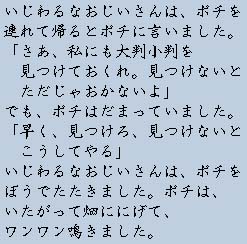 いじわるなおじいさんは、ポチを
連れて帰るとポチに言いました。
「さあ、私にも大判小判を
見つけておくれ。見つけないと
ただじゃおかないよ」
でも、ポチはだまっていました。
「早く、見つけろ、見つけないと
こうしてやる」
いじわるなおじいさんは、ポチを
ぼうでたたきました。ポチは、
いたがって畑ににげて、
ワンワン鳴きました。